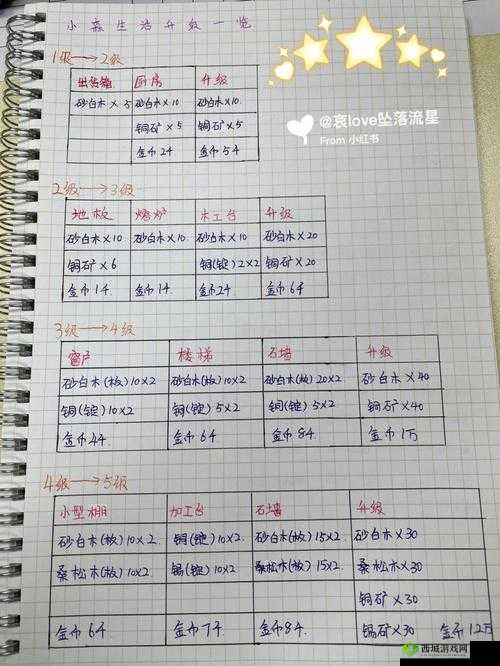 小森生活升级一览
@哀love坠落流星
From 小红书
1级→2级
出货箱 厨房 升级
砂白木×5 砂白木×10 砂白木×10
铜矿×5 铜矿×5
金币2千 金币5千
2级→3级
地板 烤炉 木工台 升级
砂白木×10 砂白木×10 砂白木×10 砂白木×20
铜矿×6 铜(锭)2×2 铜矿×20
金币1千 金币1千 金币2千 金币6千
3级→4级
窗户 楼梯 石墙 升级
砂白木(板)10×2 砂白木(板)10×2 砂白木(板)20×2 砂白木×40
铜(锭)10×2 铜(锭)5×2 铜(锭)5×2 铜矿×40
金币4千 金币6千 金币8千 金币1万
4级→5级
小型棚 加工台 石墙 升级
砂白木(板)10×2 铜(锭)10×2 砂白木(板)15×2 砂白木×30
桑松木(板)10×2 锡(锭)10×2 桑松木(板)15×2 桑松木×30
铜矿×30
金币6千 金币7千 金币8千 锡矿×30 金币12万
西城游戏网